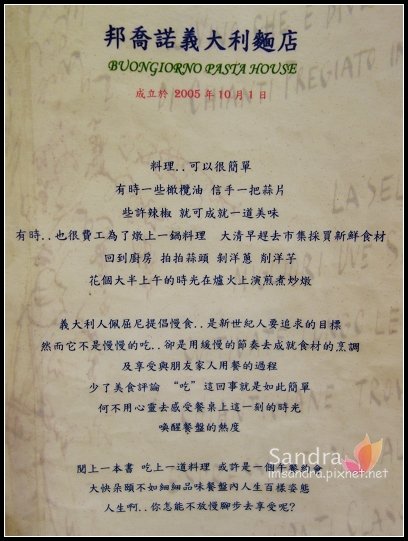 邦喬諾義大利麵店
BUONGIORNO PASTA HOUSE
成立於 2005年10月1日
料理..可以很簡單
有時一些橄欖油 信手一把蒜片
些許辣椒 就可成就一道美味
有時..也很費工為了燉上一鍋料理 大清早趕去市集採買新鮮食材
回到廚房 拍拍蒜頭 剝洋蔥 削洋芋
花個大半上午的時光在爐火上演煎煮炒燉
義大利人佩屈尼提倡慢食..是新世紀人要追求的目標
然而它不是慢慢的吃..卻是用緩慢的節奏去成就食材的烹調
及享受與朋友家人用餐的過程
少了美食評論 “吃”這回事就是如此簡單
何不用心靈去感受餐桌上這一刻的時光
喚醒餐盤的熱度
闔上一本書 吃上一道料理 或許是一個午餐約會
大快朵頤不如細細品味餐盤內人生百樣姿態
人生啊..你怎能不放慢腳步去享受呢?
Sandra
imsandra.pixnet.net